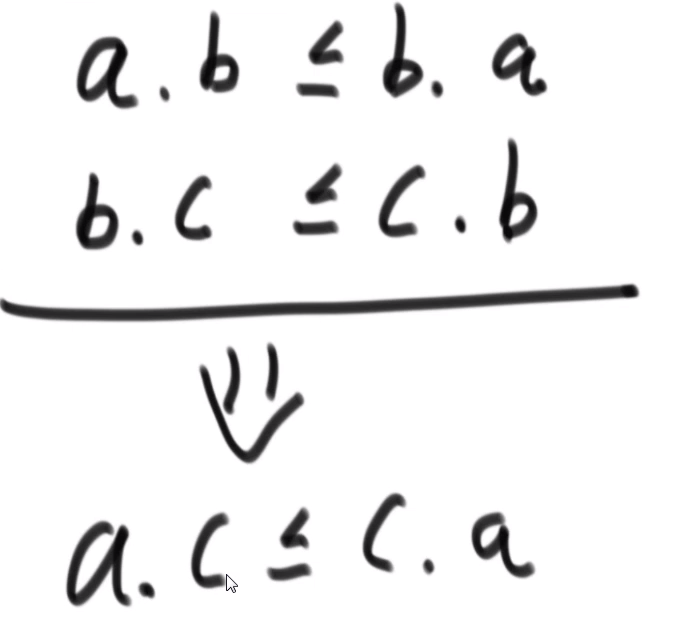 a . b ≤ b . a
b . c ≤ c . b
⇓
a . c ≤ c . a